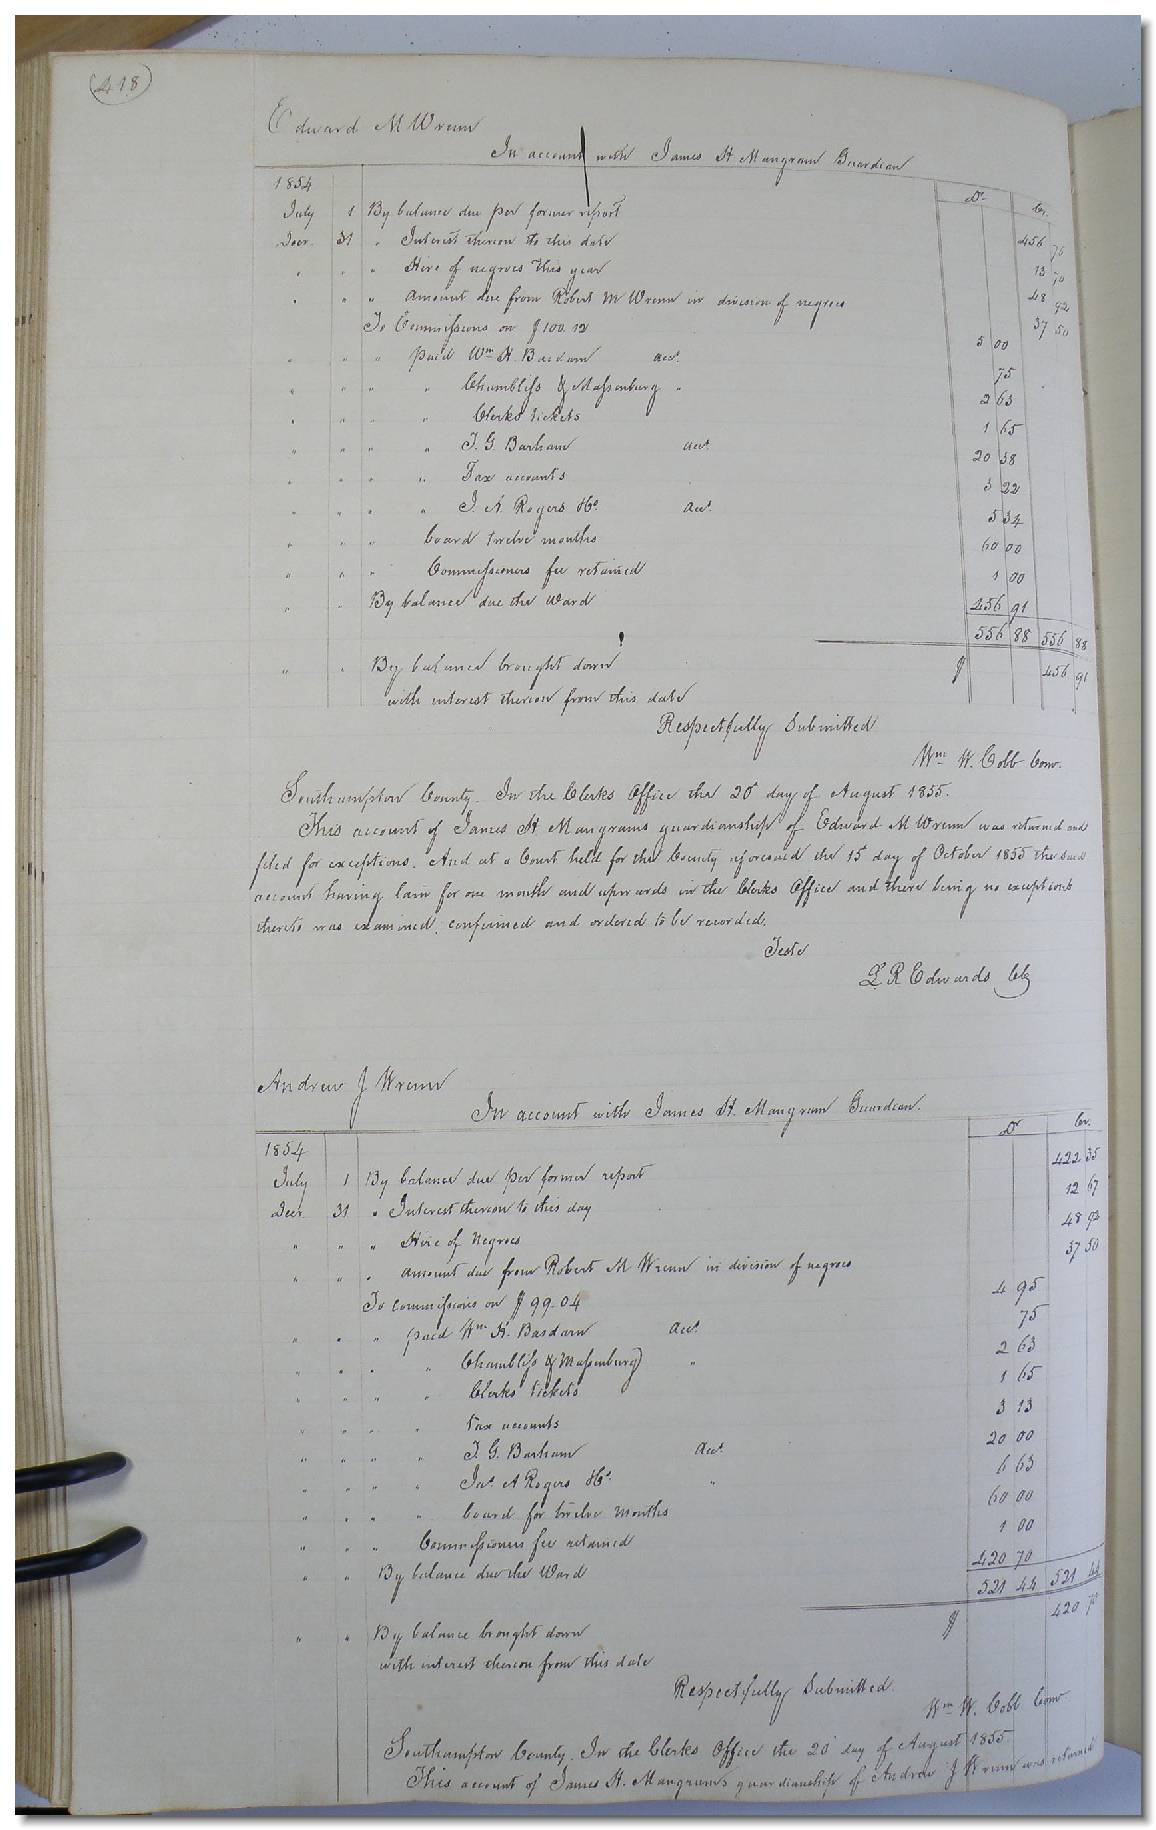 418
Edward M Wrenn
In account with James H Mangram Guardian
Dr. Cr.
1854
July 1 By balance due per former report 456 76
Decr. 31 " Interest thereon to this date 13 70
" " " Hire of negroes this year 48 92
" " " amount due from Robert M Wrenn in division of negroes 37 50
To Commissions on $100.12 5 00
" " " paid Wm H. Basdarn acct. 75
" " " " Chambliss & Massenburg " 2 63
" " " " Clerks tickets 1 65
" " " " T. G. Barham acct. 20 38
" " " " Tax accounts 3 22
" " " " J. A. Rogers &Co. acct. 5 34
" " " board twelve months 60 00
" " " Commissioners fee retained 1 00
" " By balance due the Ward 456 91
556 88 556 88
" " By balance brought down $ 456 91
with interest thereon from this date
Respectfully Submitted
Wm W. Cobb Comr.
Southampton County. In the Clerks Office the 20 day of August 1855.
This account of James H Mangrams guardianship of Edward M Wrenn was returned and
filed for exceptions. And at a Court held for the County aforesaid the 15 day of October 1855 the said
account having lain for one month and upwards in the Clerks Office and there being no exceptions
thereto was examined, confirmed and ordered to be recorded.
Teste
L. R. Edwards Clk
Andrew J Wrenn
In account with James H. Mangram Guardian.
Dr Cr.
1854
July 1 By balance due per former report 422 35
Decr 31 " Interest thereon to this day 12 67
" " " Hire of Negroes 48 92
" " " amount due from Robert M Wrenn in division of negroes 37 50
To commissions on $99.04 4 95
" " " paid Wm H. Basdarn Acct. 75
" " " " Chambliss & Massenburg " 2 63
" " " " Clerks tickets 1 65
" " " " Tax accounts 3 13
" " " " T. G. Barham Acct. 20 00
" " " " Jas. A Rogers &Co. " 6 63
" " " " board for twelve months 60 00
" " " Commissioners fee retained 1 00
" " By balance due the Ward 420 70
521 44 521 44
" " By balance brought down $ 420 70
with interest thereon from this date
Respectfully Submitted.
Wm W. Cobb Comr
Southampton County. In the Clerks Office the 20 day of August 1855.
This account of James H. Mangrams guardianship of Andrew J Wrenn was returned